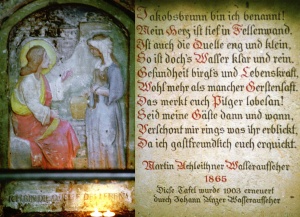 Jakobsbrunn bin ich benannt!
Mein Herz ist tief in Felsenwand.
Ist auch die Quelle eng und klein,
So ist doch's Wasser klar und rein,
Gesundheit birgt's und Lebenskraft,
Wohl mehr als mancher Gerstensaft.
Das merkt euch Pilger lobesan!
Seid meine Gäste dann und wann,
Verschont mir rings was ihr erblickt,
Da ich gastfreundlich euch erquickt.
Martin Achleithner Wasseraufseher
1865
Diese Tafel wurde 1903 erneuert
durch Johann Anzer Wasseraufseher